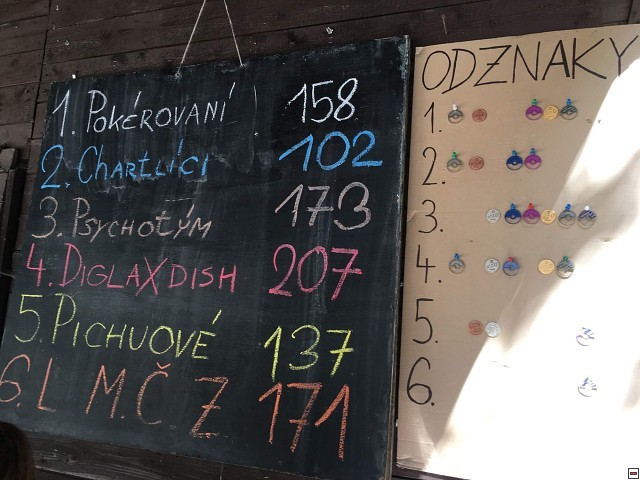 1. POKÉROVANÍ 158
2. CHARTLÍCI 102
3. PSYCHOTÝM 173
4. DIGLAXDISH 207
5. PICHUOVÉ 137
6. L M.Č. Z 171
ODZNAKY
1.
2.
3.
4.
5.
6.